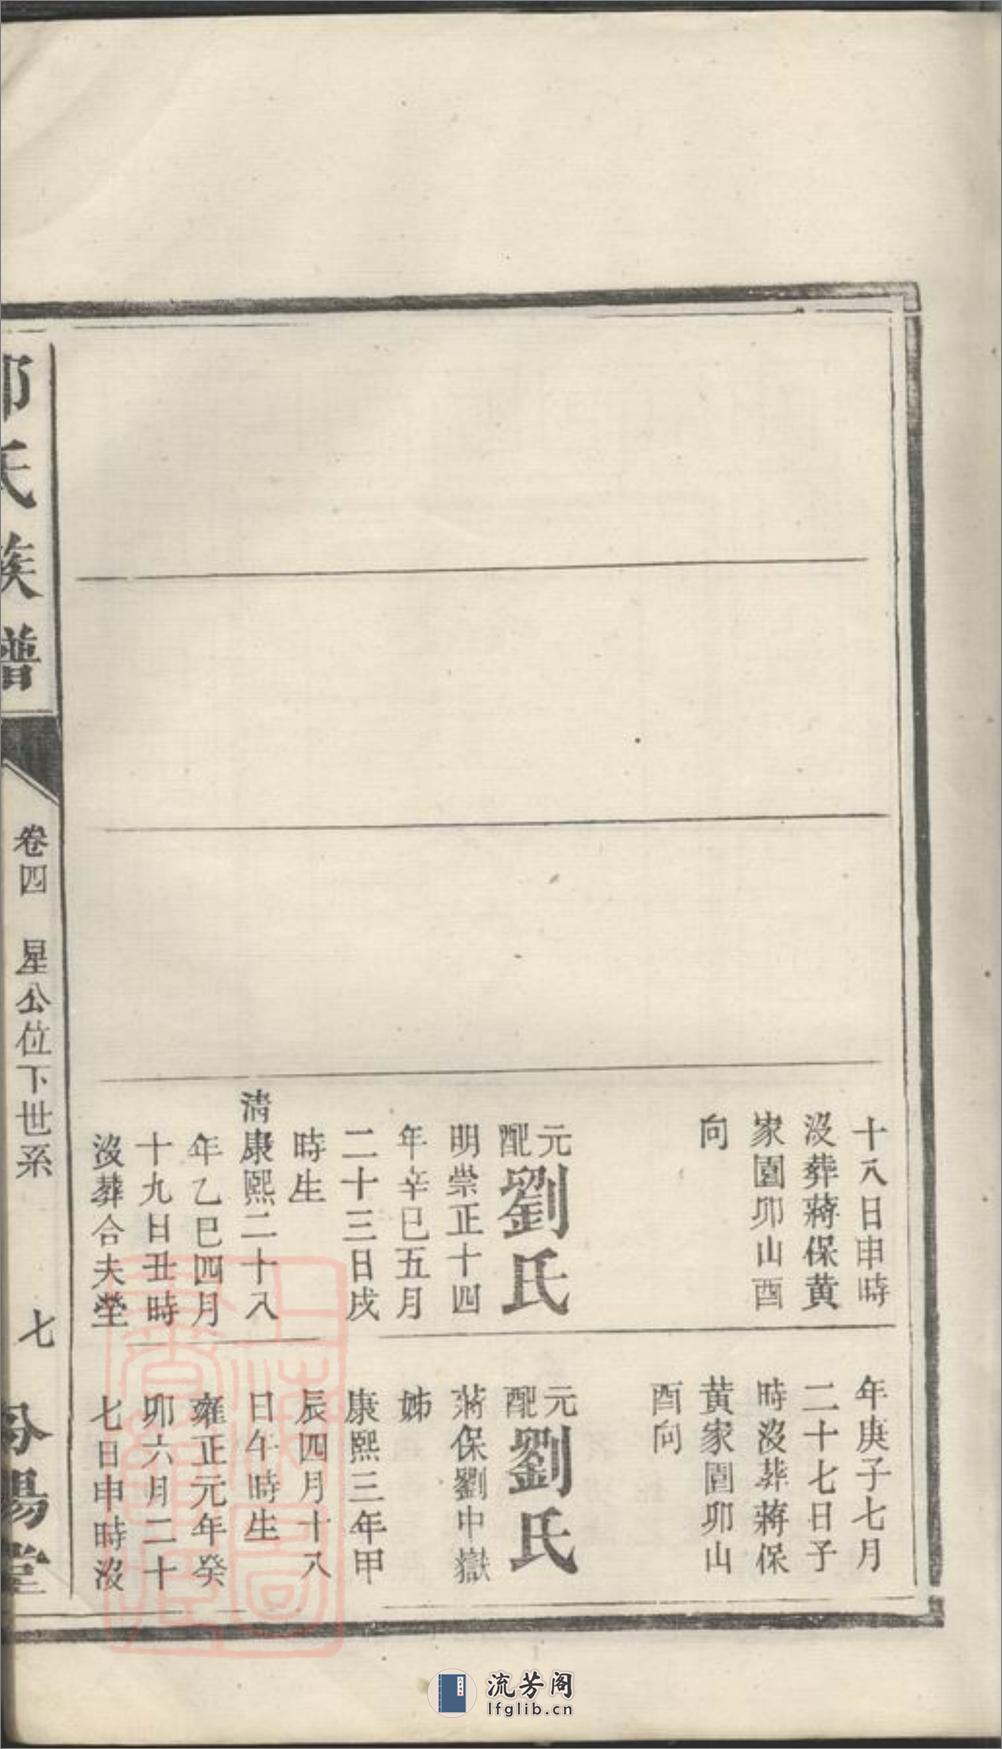 十八日申時
沒葬蔣保黄
家園卯山酉
向
元配劉氏
明崇正十四
年辛巳五月
二十三日戌
時生
清康熙二十八
年乙巳四月
十九日丑時
沒葬合夫塋
年庚子七月
二十七日子
時沒葬蔣保
黄家園卯山
酉向
元配劉氏
蔣保劉中嶽
姊
康熙三年甲
辰四月十八
日午時生
雍正元年癸
卯六月二十
七日申時沒
氏族譜
卷四 星公位下世系 七
陽堂
流芳阁
lfglib.cn